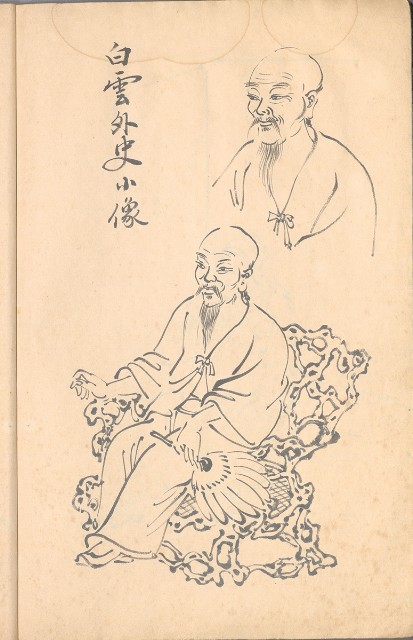 白雲外史小像